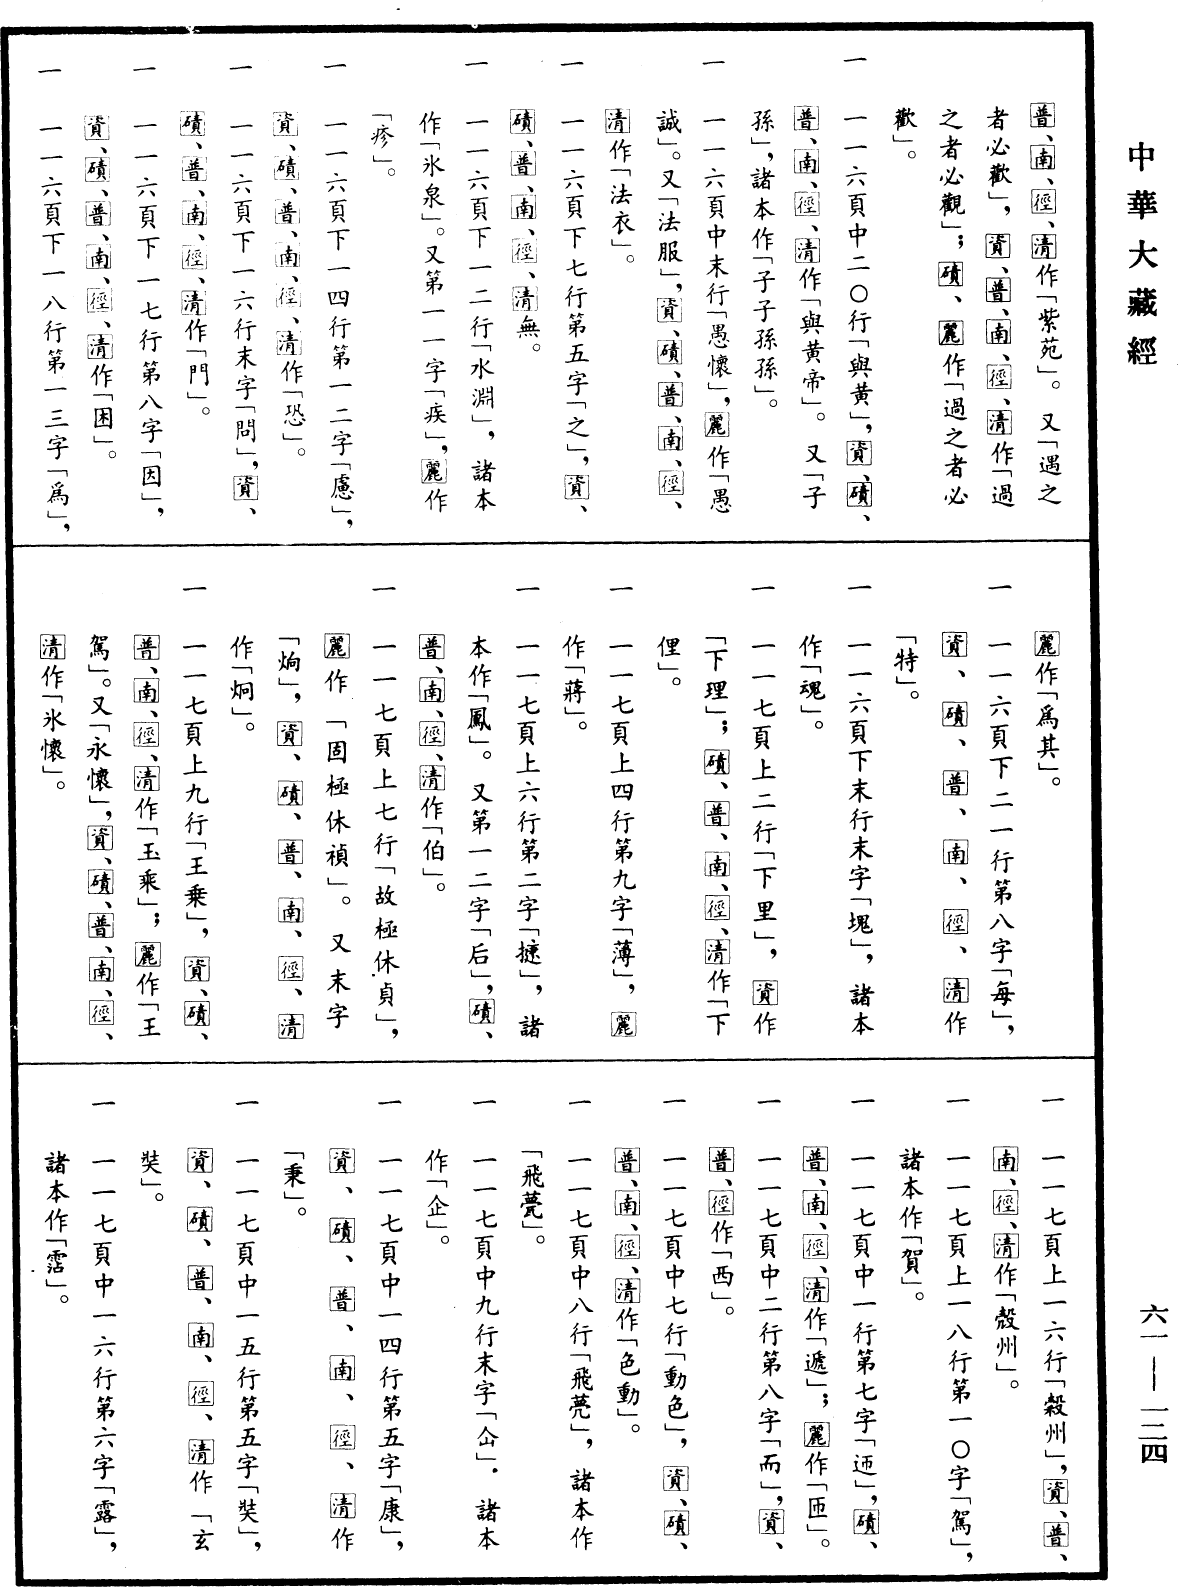 中華大藏經
普、南、徑、清作「紫苑」。又「遇之
者必歡」，資、普、南、徑、清作「過
之者必觀」；磧、麗作「過之者必
歡」。
一 一一六頁中二〇行「與黄」，資、磧、
普、南、徑、清作「與黄帝」。又「子
孫」，諸本作「子子孫孫」。
一 一一六頁中末行「愚懷」，麗作「愚
誠」。又「法服」，資、磧、普、南、徑、
清作「法衣」。
一 一一六頁下七行第五字「之」，資、
磧、普、南、徑、清無。
一 一一六頁下一二行「水淵」，諸本
作「氷泉」。又第一一字「疾」，麗作
「疹」。
一 一一六頁下一四行第一二字「慮」，
資、磧、普、南、徑、清作「恐」。
一 一一六頁下一六行末字「問」，資、
磧、普、南、徑、清作「門」。
一 一一六頁下一七行第八字「因」，
資、磧、普、南、徑、清作「困」。
一 一一六頁下一八行第一三字「爲」，
麗作「爲其」。
一 一一六頁下二一行第八字「每」，
資、磧、普、南、徑、清作
「特」。
一 一一六頁下末行末字「塊」，諸本
作「魂」。
一 一一七頁上二行「下里」，資作
「下理」；磧、普、南、徑、清作「下
俚」。
一 一一七頁上四行第九字「薄」，麗
作「蔣」。
一 一一七頁上六行第二字「㨗」，諸
本作「鳳」。又第一二字「后」，磧、
普、南、徑、清作「伯」。
一 一一七頁上七行「故極休貞」，
麗作「固極休禎」。又末字
「烱」，資、磧、普、南、徑、清
作「炯」。
一 一一七頁上九行「王乗」，資、磧、
普、南、徑、清作「玉乘」；麗作「王
駕」。又「永懷」，資、磧、普、南、徑、
清作「氷懷」。
一 一一七頁上一六行「穀州」，資、普、
南、徑、清作「殼州」。
一 一一七頁上一八行第一〇字「駕」，
諸本作「賀」。
一 一一七頁中一行第七字「迊」，磧、
普、南、徑、清作「遞」；麗作「匝」。
一 一一七頁中二行第八字「而」，資、
普、徑作「西」。
一 一一七頁中七行「動色」，資、磧、
普、南、徑、清作「色動」。
一 一一七頁中八行「飛薨」，諸本作
「飛甍」。
一 一一七頁中九行末字「㑁」．諸本
作「企」。
一 一一七頁中一四行第五字「康」，
資、磧、普、南、徑、清作
「秉」。
一 一一七頁中一五行第五字「奘」，
資、磧、普、南、徑、清作「玄
奘」。
一 一一七頁中一六行第六字「露」，
諸本作「霑」。
六一—一二四